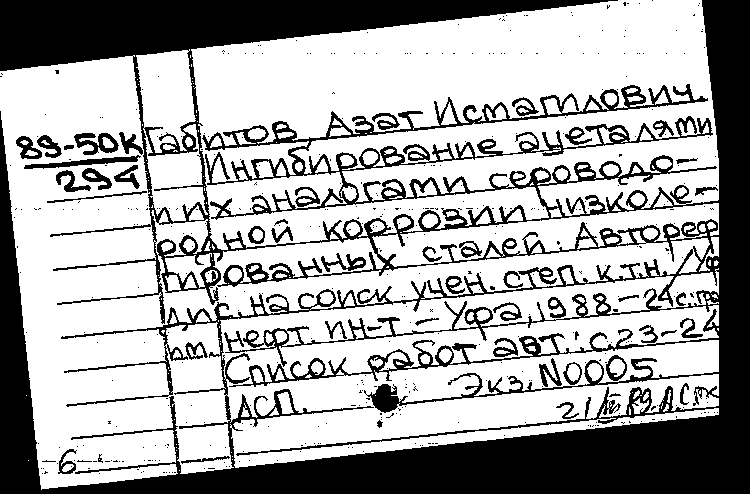 89-50к
294
Габитов Азат Исмагилович.
Ингибирование ацеталями
и их аналогами сероводо-
родной коррозии низколе-
гированных сталей. Автореф
дис. на соиск. учен. степ. к.т.н. /Уф
нефт. ин-т - Уфа, 1988. - 24 с.: гра
п.т.
Список работ авт.: с. 23-24
ДСП. Экз. N0005.
6